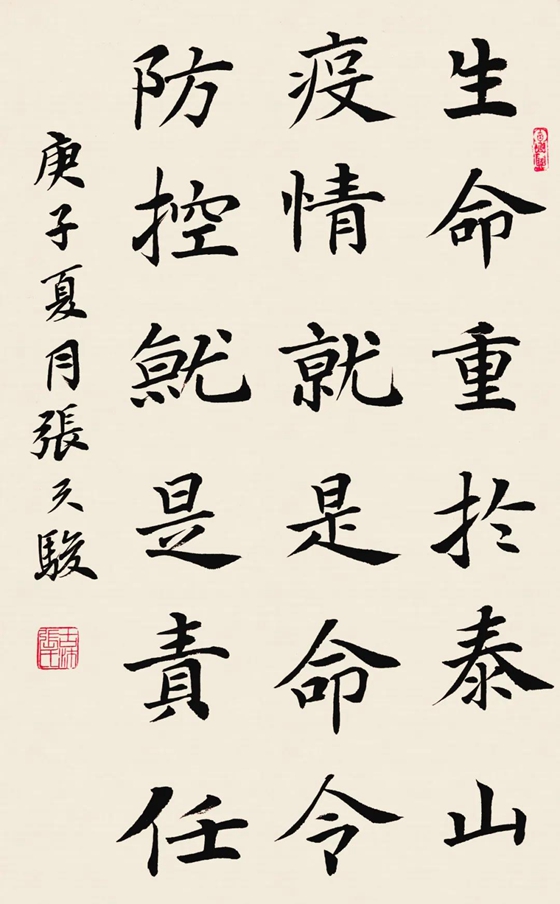 生命重於泰山
疫情就是命令
防控就是責任
庚子夏月張天駿